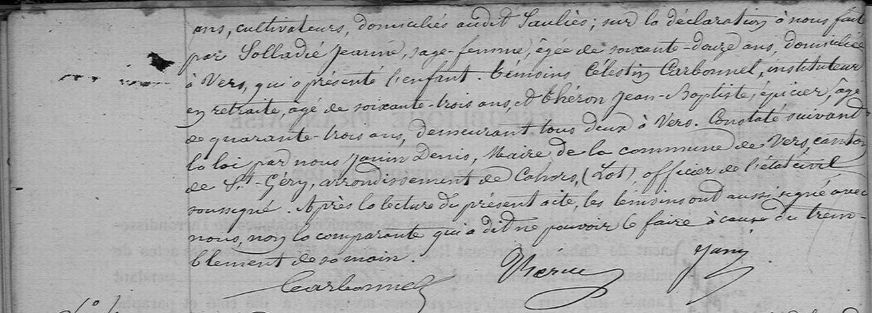 ans, cultivateurs, domiciliés audit Sauliès; sur la déclaration à nous faite
par Solladié Jeanne, sage-femme, âgée de soixante-douze ans, domiciliée
à Vers, qui a présenté l'enfant. Témoins Célestin Carbonnel, instituteur
en retraite, âgé de soixante-trois ans, et Théron Jean-Baptiste, épicier, âgé
de quarante-trois ans, demeurant tous deux à Vers. Constaté suivant
la loi par nous Janin Denis, Maire de la commune de Vers, canton
de St-Géry, arrondissement de Cahors, (Lot) officier de l'état civil
soussigné. Après la lecture du présent acte, les témoins ont aussi signé avec
nous, non la comparante qui a dit ne pouvoir le faire à cause du trem-
blement de sa main.
Carbonnel